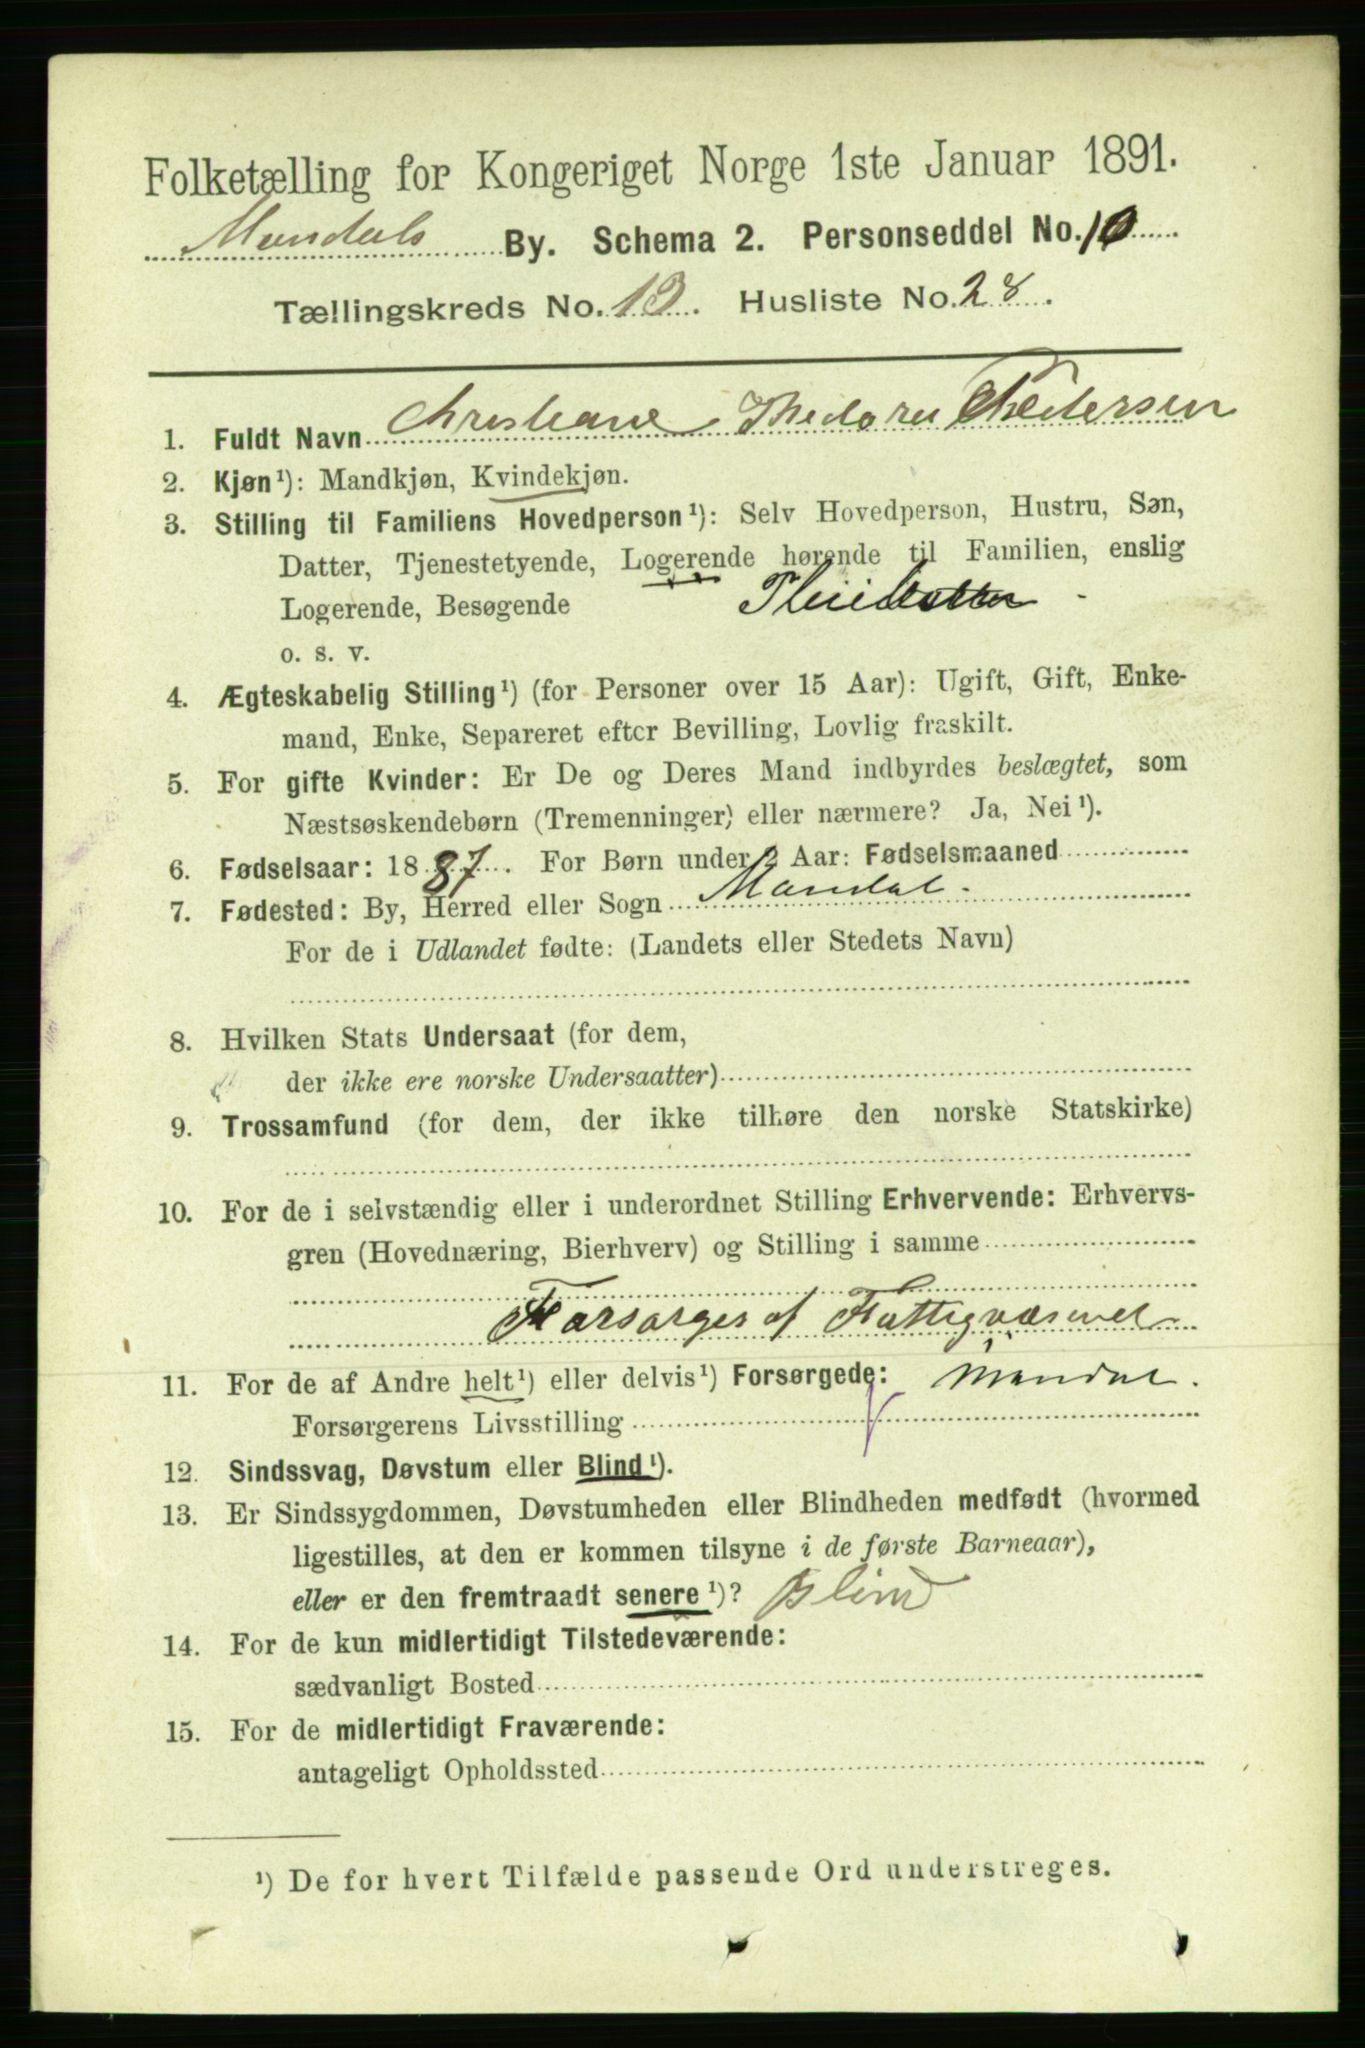 Folketælling for Kongeriget Norge 1ste Januar 1891.
Mandals By. Schema 2. Personseddel No. 10
Tællingskreds No. 13. Husliste No. 28.
1. Fuldt Navn Christiane Thedora Pedersen
2. Kjøn¹): Mandkjøn, Kvindekjøn.
3. Stilling til Familiens Hovedperson¹): Selv Hovedperson, Hustru, Søn,
Datter, Tjenestetyende, Logerende hørende til Familien, enslig
Logerende, Besøgende Pleiedatter
o. s. v.
4. Ægteskabelig Stilling¹) (for Personer over 15 Aar): Ugift, Gift, Enke-
mand, Enke, Separeret efter Bevilling, Lovlig fraskilt.
5. For gifte Kvinder: Er De og Deres Mand indbyrdes beslægtet, som
Næstsøskendebørn (Tremenninger) eller nærmere? Ja, Nei¹).
6. Fødselsaar: 1887. For Børn under 2 Aar: Fødselsmaaned
7. Fødested: By, Herred eller Sogn Mandal.
For de i Udlandet fødte: (Landets eller Stedets Navn)
8. Hvilken Stats Undersaat (for dem,
der ikke ere norske Undersaatter)
9. Trossamfund (for dem, der ikke tilhøre den norske Statskirke)
10. For de i selvstændig eller i underordnet Stilling Erhvervende: Erhvervs-
gren (Hovednæring, Bierhverv) og Stilling i samme
Forsørges af Fattigvæsenet
11. For de af Andre helt¹) eller delvis¹) Forsørgede: i Mandal.
Forsørgerens Livsstilling
12. Sindssvag, Døvstum eller Blind¹).
13. Er Sindssygdommen, Døvstumheden eller Blindheden medfødt (hvormed
ligestilles, at den er kommen tilsyne i de første Barneaar),
eller er den fremtraadt senere¹)? Blind
14. For de kun midlertidigt Tilstedeværende:
sædvanligt Bosted
15. For de midlertidigt Fraværende:
antageligt Opholdssted
¹) De for hvert Tilfælde passende Ord understreges.